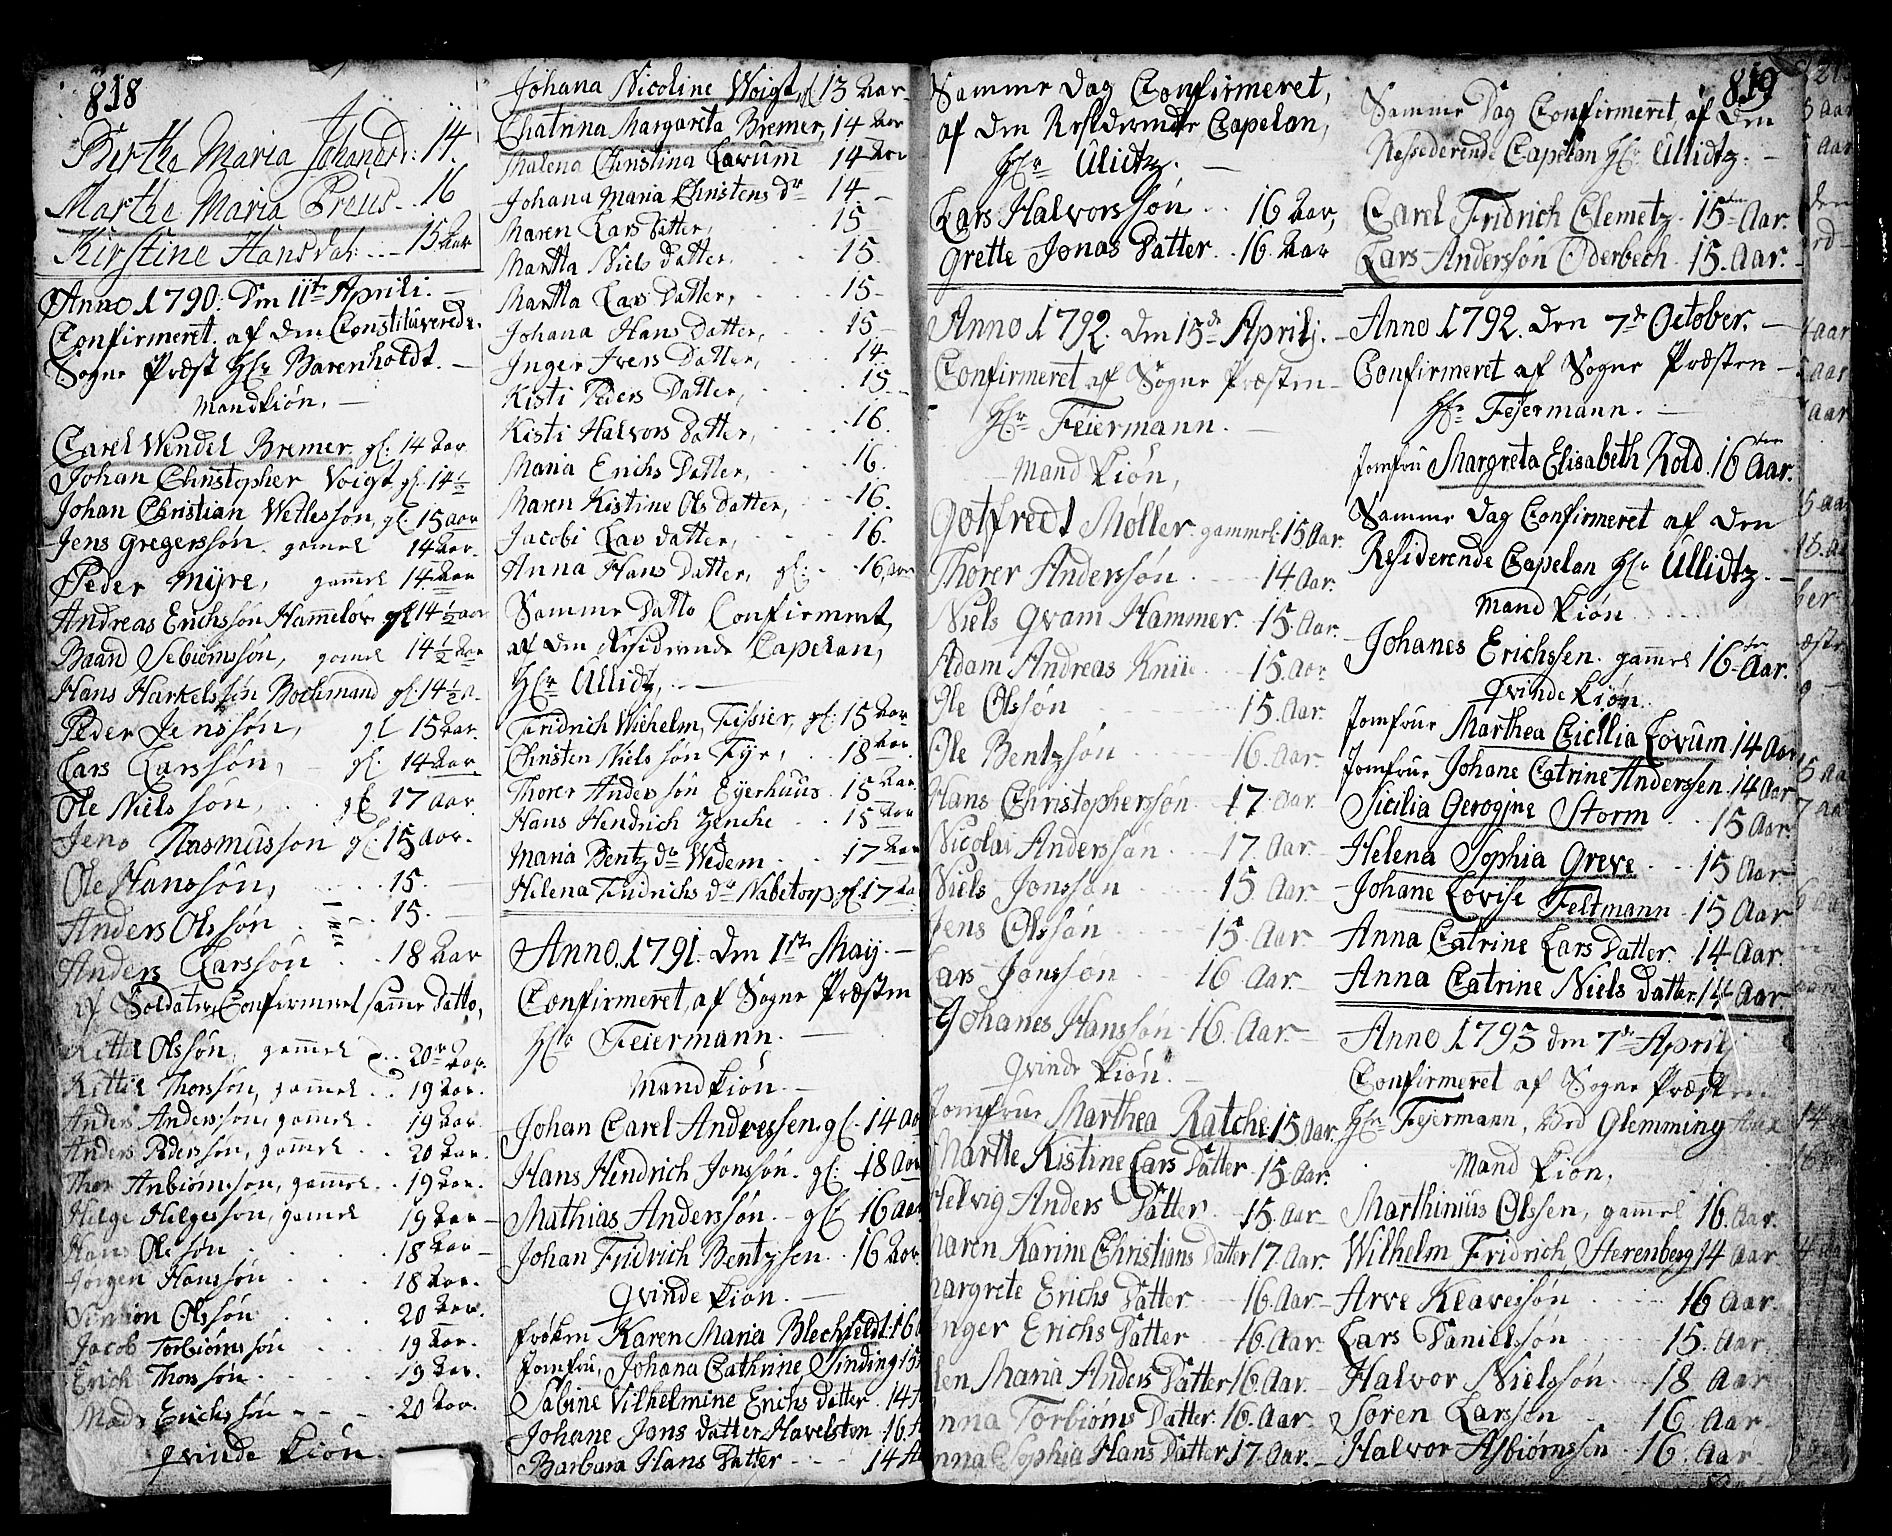 818
Berthe Maria Johansdr: 14.
Marthe Maria Preus.. 16
Kirstine Hansdat: ... 15 Aar
Anno 1790: Den 11te Aprili. —
Confirmeret af den Constituerede
Sogne Præst Hr Barenholdt. —
Mandkiön, —
Carel Wendel Bremer gl: 14 Aar
Johan Christopher Voigt gl: 14½
Johan Christian Wetlessön, gl: 15 Aar
Jens Gregerssön. gamel 14 Aar.
Peder Myre, gamel 14 Aar
Andreas Erichssön Hammelöw gl 14½ Aar
Baard Sebiörnssön, gamel 14½ Aar
Hans Harkelssön Bochmand gl: 14½ A.
Peder Jenssön, gl 15 Aar.
Lars Larssön, gl: 14 Aar.
Ole Nielssön, .. gl 17 Aar
Jens Rasmussön gl: 15 Aar.
Ole Hanssön, 15.
Anders Olssön 15.
Anders Larssön .. 18 Aar
af Soldater, Confirmeret samme Datto,
Kittil Olssön, gammel .. 20 Aar.
Kittil Thorssön, gammel .. 19 Aar.
Anders Anderssön, gammel 19 Aar.
Anders Pederssön, gammel .. 20 Aar.
Thor Anbiörnssön, gammel .. 19 Aar.
Helge Helgessön, gamel 19 Aar —
Hans Olssön 18 Aar —
Jörgen Hanssön .... 18 Aar.
Simion Olssön .... 20 Aar.
Jacob Torbiörnssön .... 19 Aar.
Erich Thorssön .... 19 Aar.
Mads Erichssön — — — 20 Aar.
Qvinde Kiön.
Johana Nicoline Voigt, gl 13 Aar
Chatrina Margareta Bremer, 14 Aar
Malena Christina Lövum 14 Aar
Johana Maria Christens dr 14 —
Maren Lars Datter, 15
Martta Niels Datter. 15.
Martta Lars Datter, 15 —
Johana Hans Datter, 15 —
Inger Ivers Datter, 14
Kisti Peders Datter, 15 —
Kisti Halvors Datter, 16.
Maria Erichs Datter, 16.
Maren Kistine Ols datter, 16.
Jacobi Lars datter, 16.
Anna Hans Datter, gl: 16 Aar
Samme Datto Confirmeret,
af den Residerende Capelan,
Hr Ullidtz. —
Fridrich Wilhelm, Fissier, gl: 15 Aar
Christen Nielssön Fyr, .. 18 Aar.
Thorer Anderssön Eyerhuus. 15 Aar
Hans Hendrich Zenche .. 15 Aar
Maria Bentz dr Wedem .. 17 Aar
Helena Fridrichs dr Nabetorp gl 17 Aar
Anno. 1791. Den 1ste May. —
Confirmeret, af Sogne Præsten
Hr Feiermann. —
Mandkiön. —
Johan Carel Andressen. gl: 14 Aar
Hans Hendrich Jonssön. gl. 18 Aar
Mathias Anderssön. — gl: 16 Aar
Johan Fridrich Bentzsen .. 16 Aar.
Qvinde Kiön. —
Fröken Karen Maria Blechfeldt. 16
Jomfru, Johana Cathrine, Sinding 15
Sabine Vilhelmine Erichs datter. 14
Johane Jans datter Havelsten. 16.
Barbara Hans Datter — .. 14
Samme Dag Confirmeret,
af den Residerende Capelan,
Hr Ullidtz. —
Lars Halvorssön .. 16 Aar,
Grette Jonas Datter .. 16. Aar
Anno 1792. den 15de Aprili. —
Confirmeret af Sogne Præsten —
Hr Feiermann. —
Mand Kiön,
Gotfredt Møller. gammel. 15 Aar.
Thorer Anderssön .... 14. Aar.
Niels Qvam Hammer. 15. Aar.
Adam Andreas 15. Aar
Ole Olssön 15. Aar.
Ole Bentzsön 16. Aar.
Hans Christopherssön 17. Aar.
Nicolai Anderssøn ... 17 Aar
Niels Jonssön 15. Aar.
Jens Olssön 15. Aar. —
Lars Jonssön 16 Aar. —
Johanes Hanssön. 16. Aar. —
Qvinde Kiön. —
Jomfrue Marthea Ratche 15 Aar.
Marthe Kistine Lars Datter 15. Aar.
Helvig Anders Datter. 15. Aar —
Maren Karine Christians Datter 17. Aar.
Margrete Erichs Datter 16. Aar. —
Inger Erichs Datter 16. Aar.
Maria Anders Datter 16. Aar.
Anna Torbiörns Datter. 16. Aar.
Anna Sophia Hans Datter 17. Aar. —
819
Samme Dag Confirmeret, af den
Ressederende Capelan Hr Ullidtz. —
Carel Fridrich Clemetz. 15 Aar.
Lars Anderssön Oderbech. 15. Aar. —
Anno 1792. Den 7de October. —
Confirmeret af Sogne Præsten —
Hr Fejermann. —
Jomfru Margreta Elisabeth Kold. 16 Aar.
Samme Dag Confirmeret af den
Residerende Capelan Hr Ullidtz. —
Mand Kiön
Johanes Erichssen. gammel 16 Aar.
Qvinde Kiön.
Jomfrue Marthea Cicilia Lövum 14 Aar
Jomfrue Johane Catrine Anderssen. 14 Aar
Sicilia Gerogine Storm .. 15 Aar.
Helena Sophia Greve ... 15 Aar
Johane Lovise Feltmann . 15 Aar
Anna Catrine Lars Datter. 14 Aar
Anna Catrine Niels Datter. 14 Aar
Anno 1793 den 7de Aprilj
Confirmeret af Sogne Præsten
Hr Fejermann, Ved Glemming
Mand Kiön.
Marthinius Olssen, gamel 16. Aar.
Wilhelm Fridrich, Sterenberg 14 Aar
Arve Klavessön 16 Aar
Lars Danielssön 15. Aar.
Halvor Nielssön .. 18 Aar
Sören Larssön 16. Aar
Halvor Asbiörnssen .. 16. Aar